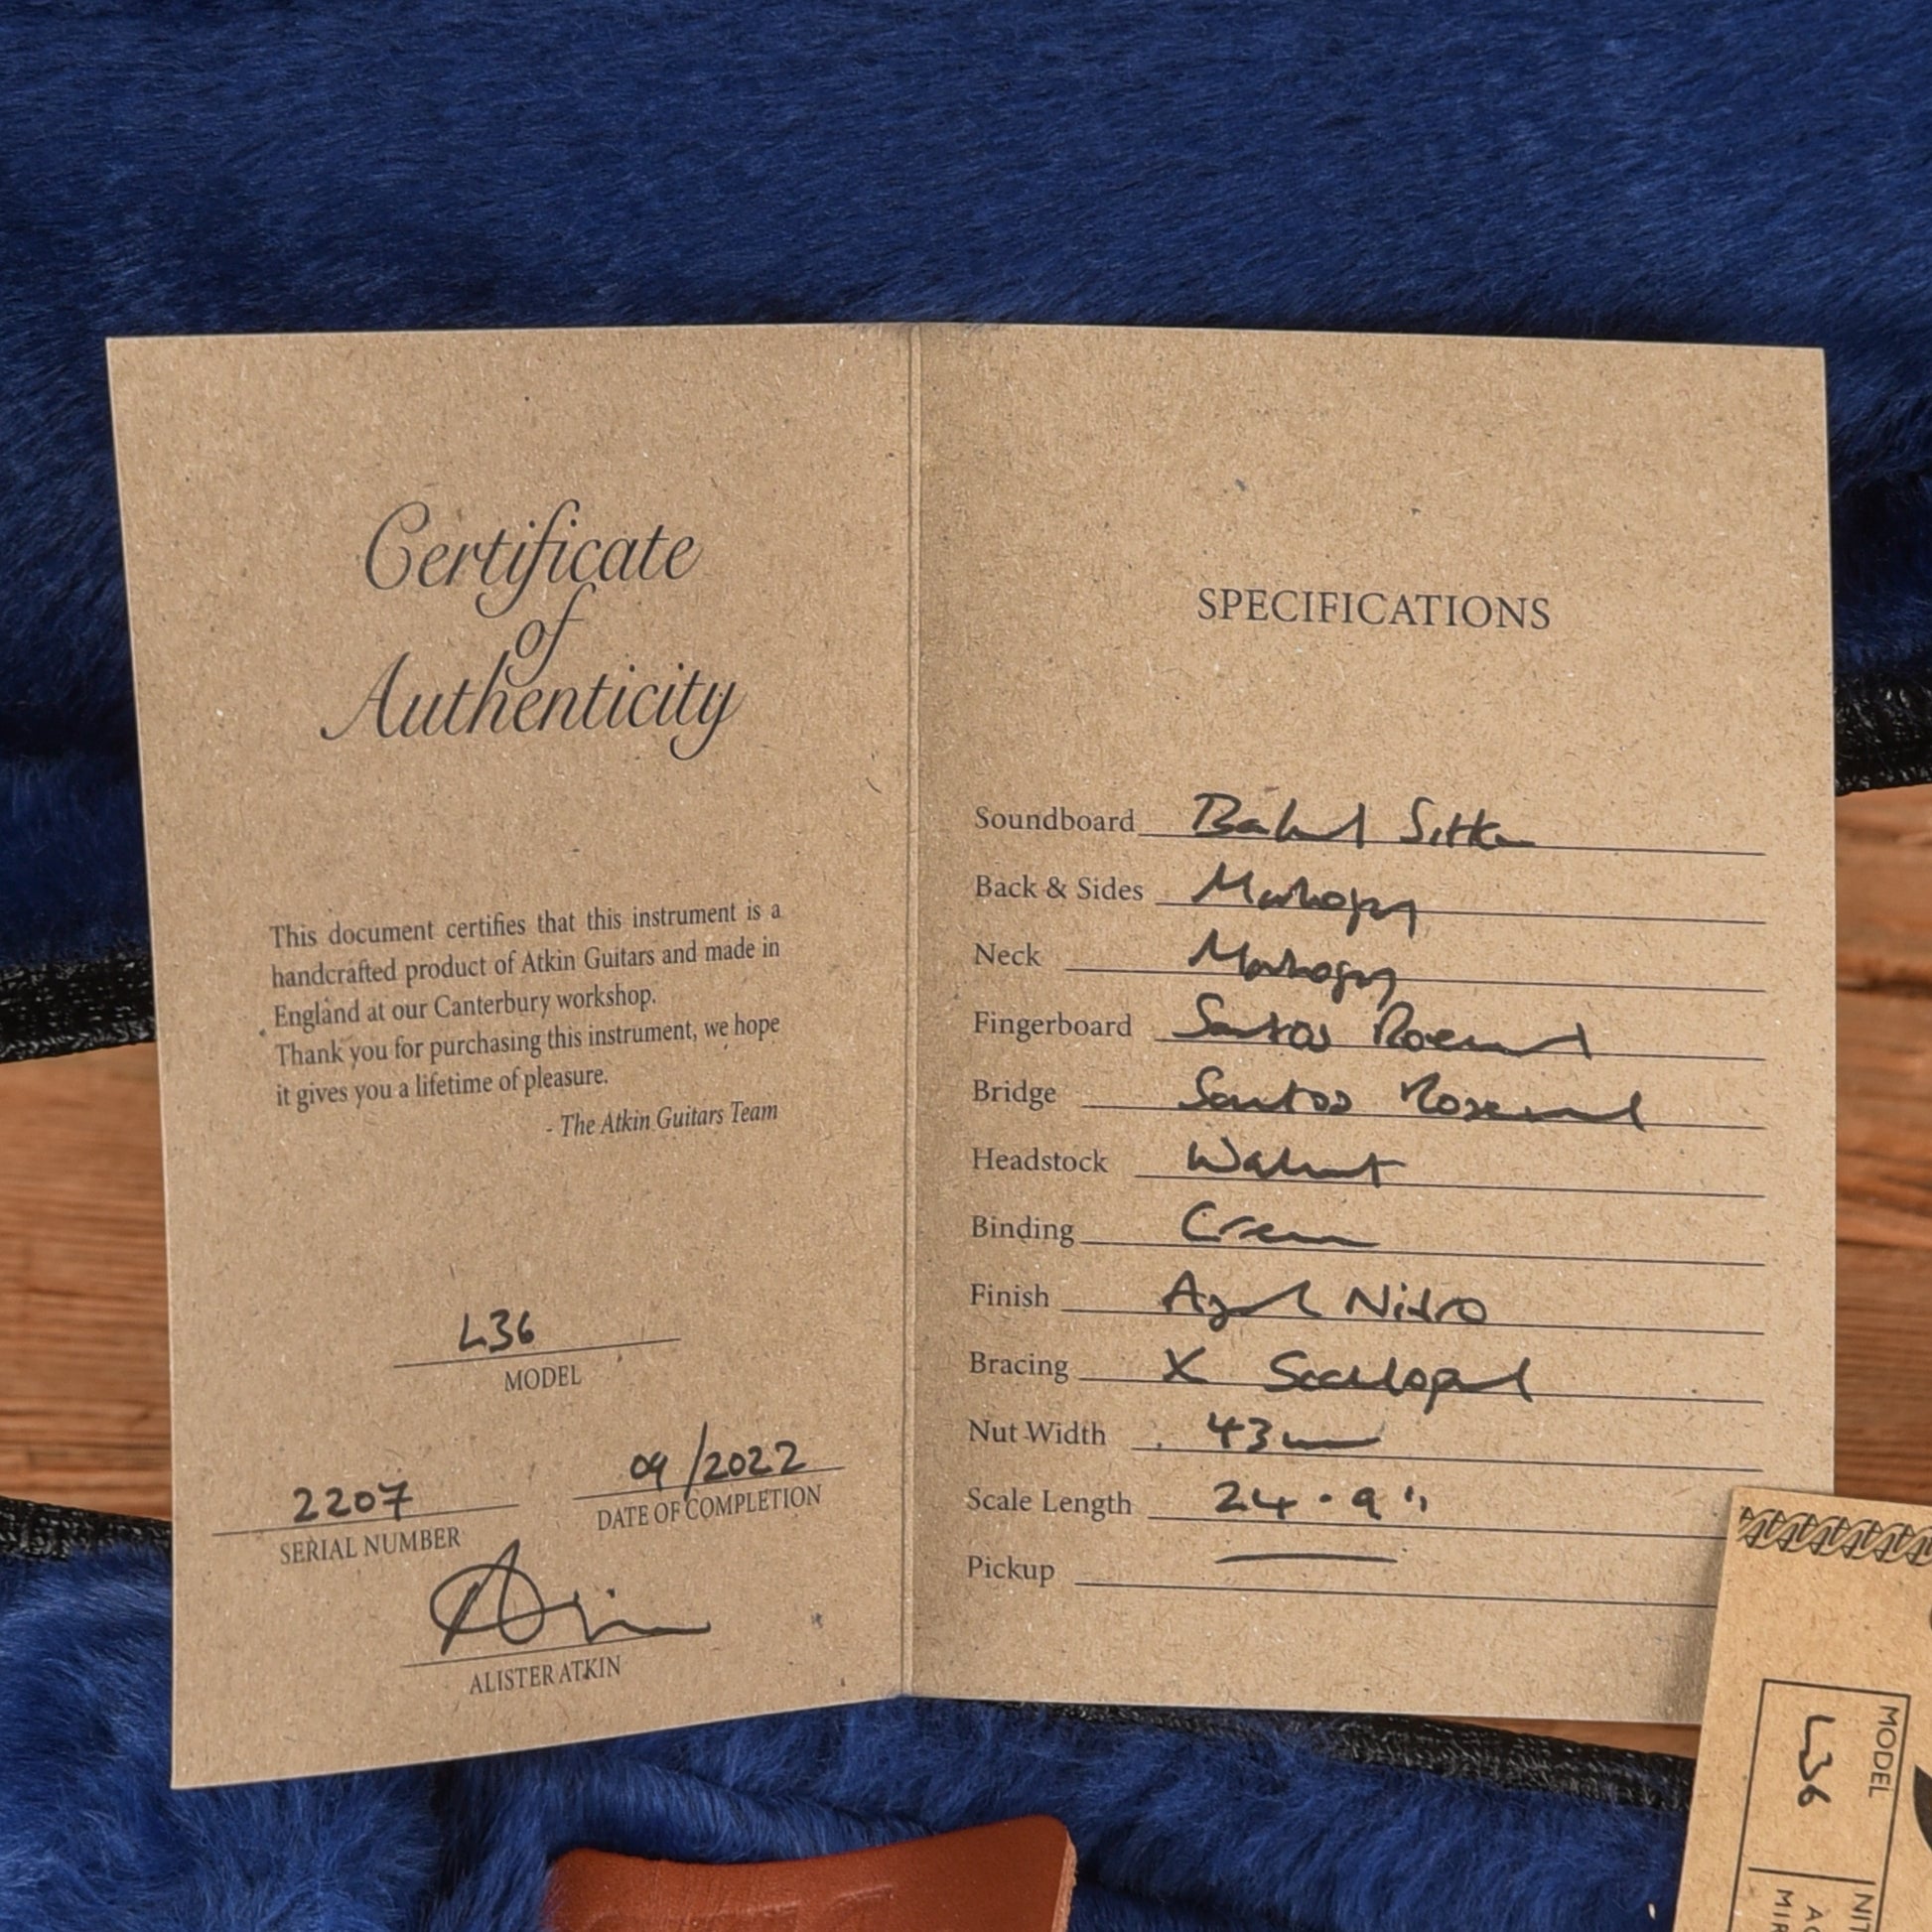 Certificate
of
Authenticity
This document certifies that this instrument is a
handcrafted product of Atkin Guitars and made in
England at our Canterbury workshop.
Thank you for purchasing this instrument, we hope
it gives you a lifetime of pleasure.
- The Atkin Guitars Team
L36
MODEL
2207
SERIAL NUMBER
09/2022
DATE OF COMPLETION
ALISTER ATKIN
SPECIFICATIONS
Soundboard Baked Sitka
Back & Sides Mahogany
Neck Mahogany
Fingerboard Santos Rosewood
Bridge Santos Rosewood
Headstock Walnut
Binding Cream
Finish Aged Nitro
Bracing X Scalloped
Nut Width 43mm
Scale Length 24.9"
Pickup —
MODEL
L36